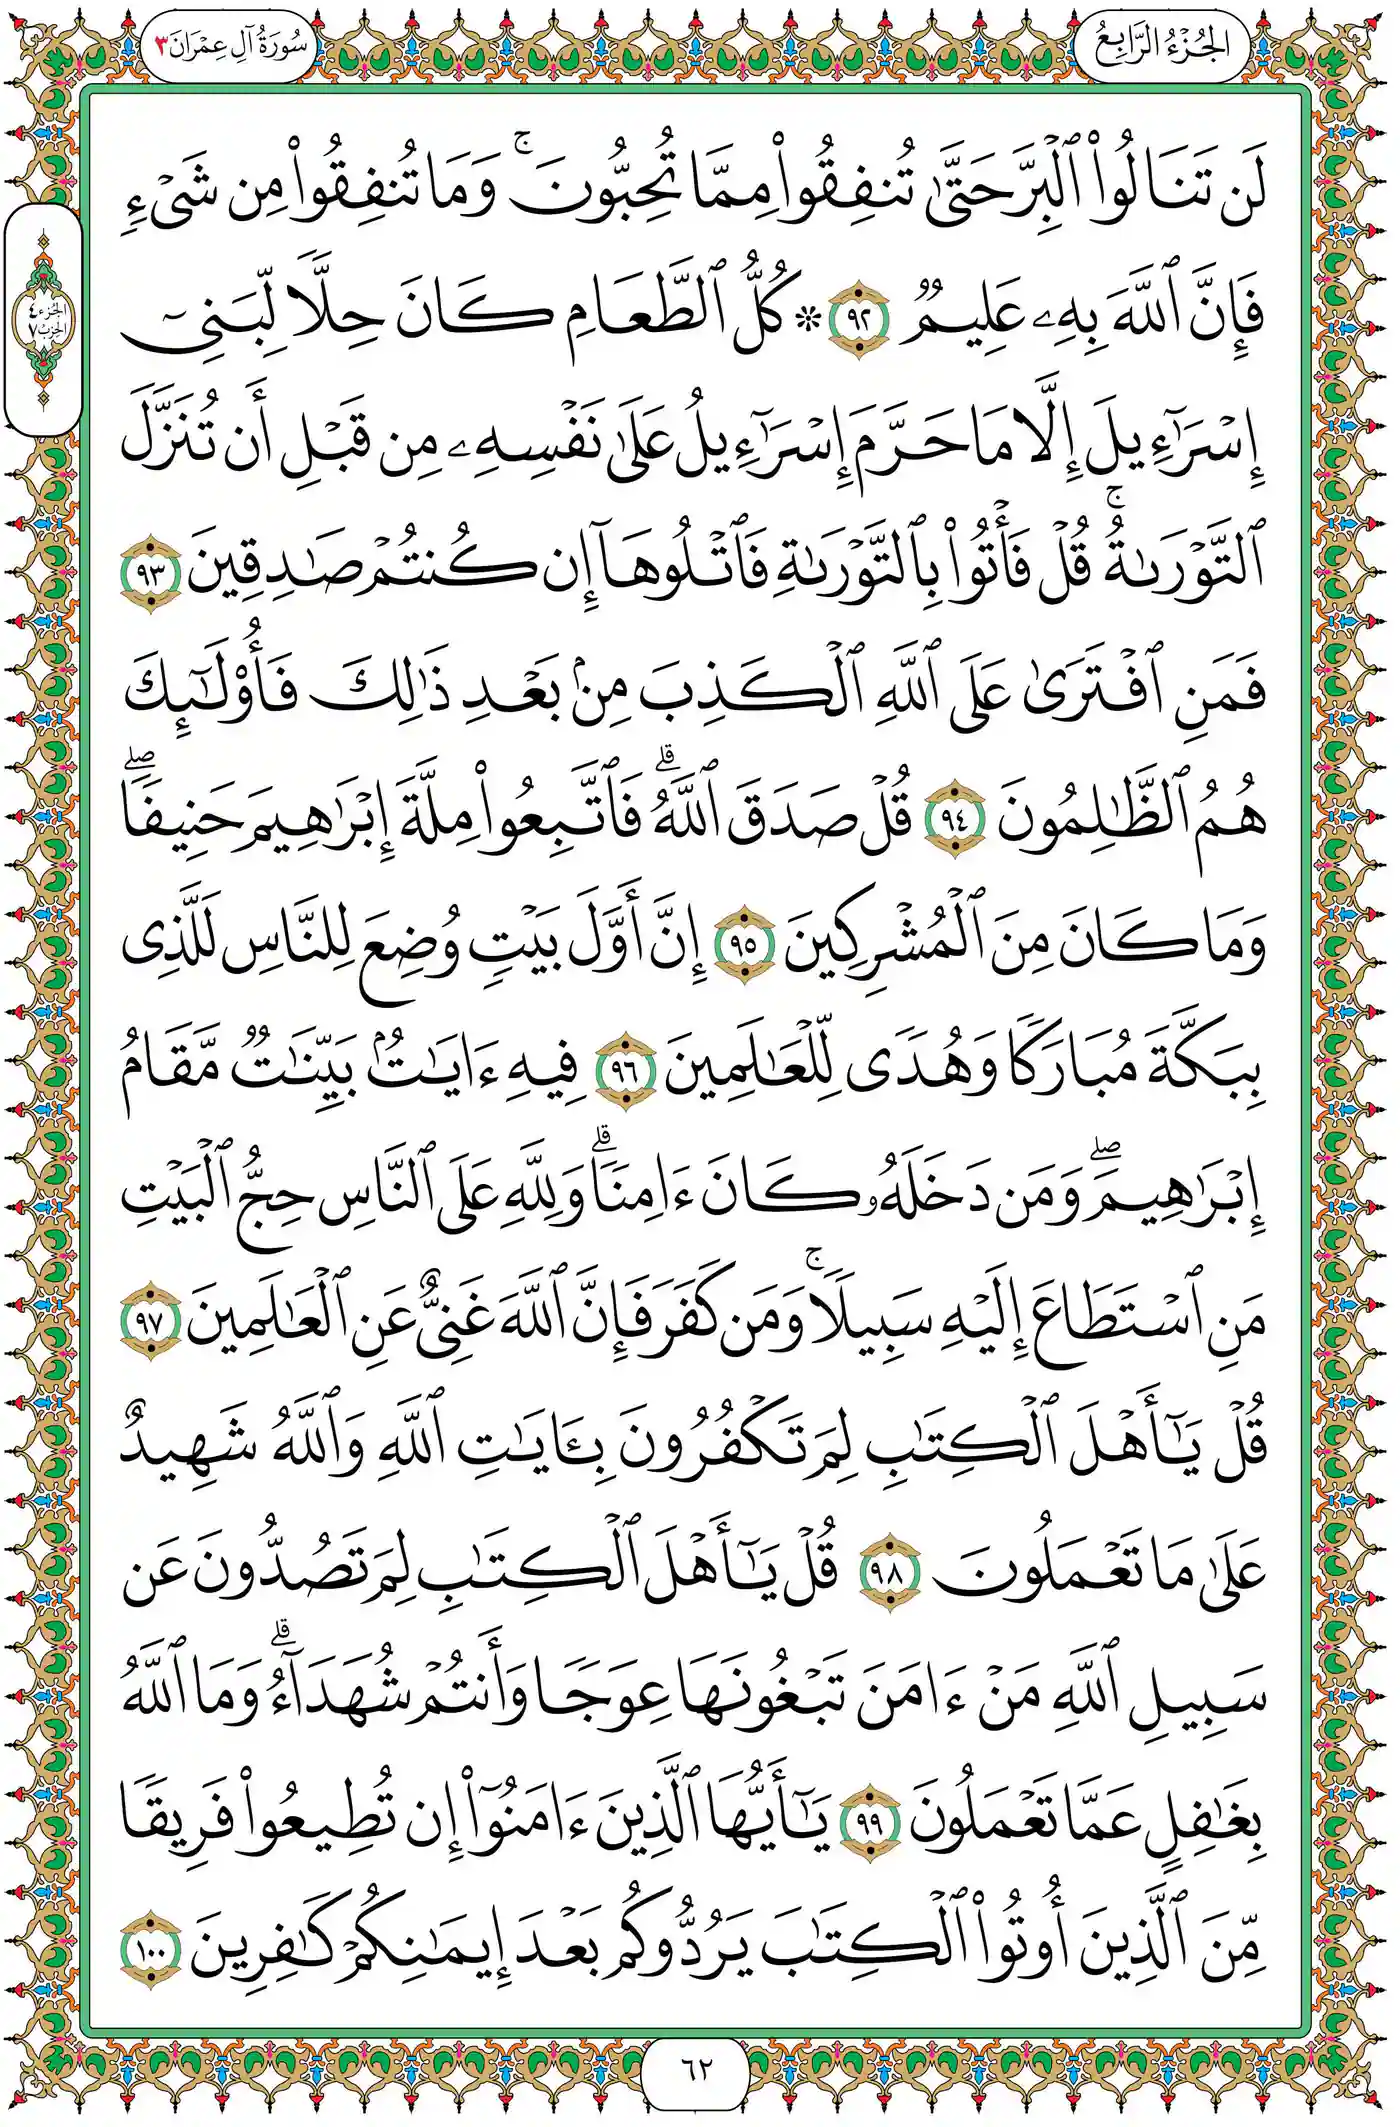 الجُزْءُ الرَّابِعُ
سُورَةُ آلِ عِمْرَانَ ٣
الجزء ٤
الحزب ٧
لَن تَنَالُوا۟ ٱلْبِرَّ حَتَّىٰ تُنفِقُوا۟ مِمَّا تُحِبُّونَ ۚ وَمَا تُنفِقُوا۟ مِن شَىْءٍ
فَإِنَّ ٱللَّهَ بِهِۦ عَلِيمٌ ٩٢ * كُلُّ ٱلطَّعَامِ كَانَ حِلًّا لِّبَنِىٓ
إِسْرَٰٓءِيلَ إِلَّا مَا حَرَّمَ إِسْرَٰٓءِيلُ عَلَىٰ نَفْسِهِۦ مِن قَبْلِ أَن تُنَزَّلَ
ٱلتَّوْرَىٰةُ ۚ قُلْ فَأْتُوا۟ بِٱلتَّوْرَىٰةِ فَٱتْلُوهَآ إِن كُنتُمْ صَٰدِقِينَ ٩٣
فَمَنِ ٱفْتَرَىٰ عَلَى ٱللَّهِ ٱلْكَذِبَ مِنۢ بَعْدِ ذَٰلِكَ فَأُو۟لَٰٓئِكَ
هُمُ ٱلظَّٰلِمُونَ ٩٤ قُلْ صَدَقَ ٱللَّهُ ۗ فَٱتَّبِعُوا۟ مِلَّةَ إِبْرَٰهِيمَ حَنِيفًا ۖ
وَمَا كَانَ مِنَ ٱلْمُشْرِكِينَ ٩٥ إِنَّ أَوَّلَ بَيْتٍ وُضِعَ لِلنَّاسِ لَلَّذِى
بِبَكَّةَ مُبَارَكًا وَهُدًى لِّلْعَٰلَمِينَ ٩٦ فِيهِ ءَايَٰتٌۢ بَيِّنَٰتٌ مَّقَامُ
إِبْرَٰهِيمَ ۖ وَمَن دَخَلَهُۥ كَانَ ءَامِنًا ۗ وَلِلَّهِ عَلَى ٱلنَّاسِ حِجُّ ٱلْبَيْتِ
مَنِ ٱسْتَطَاعَ إِلَيْهِ سَبِيلًا ۚ وَمَن كَفَرَ فَإِنَّ ٱللَّهَ غَنِىٌّ عَنِ ٱلْعَٰلَمِينَ ٩٧
قُلْ يَٰٓأَهْلَ ٱلْكِتَٰبِ لِمَ تَكْفُرُونَ بِـَٔايَٰتِ ٱللَّهِ وَٱللَّهُ شَهِيدٌ
عَلَىٰ مَا تَعْمَلُونَ ٩٨ قُلْ يَٰٓأَهْلَ ٱلْكِتَٰبِ لِمَ تَصُدُّونَ عَن
سَبِيلِ ٱللَّهِ مَنْ ءَامَنَ تَبْغُونَهَا عِوَجًا وَأَنتُمْ شُهَدَآءُ ۗ وَمَا ٱللَّهُ
بِغَٰفِلٍ عَمَّا تَعْمَلُونَ ٩٩ يَٰٓأَيُّهَا ٱلَّذِينَ ءَامَنُوٓا۟ إِن تُطِيعُوا۟ فَرِيقًا
مِّنَ ٱلَّذِينَ أُوتُوا۟ ٱلْكِتَٰبَ يَرُدُّوكُم بَعْدَ إِيمَٰنِكُمْ كَٰفِرِينَ ١٠٠
٦٢